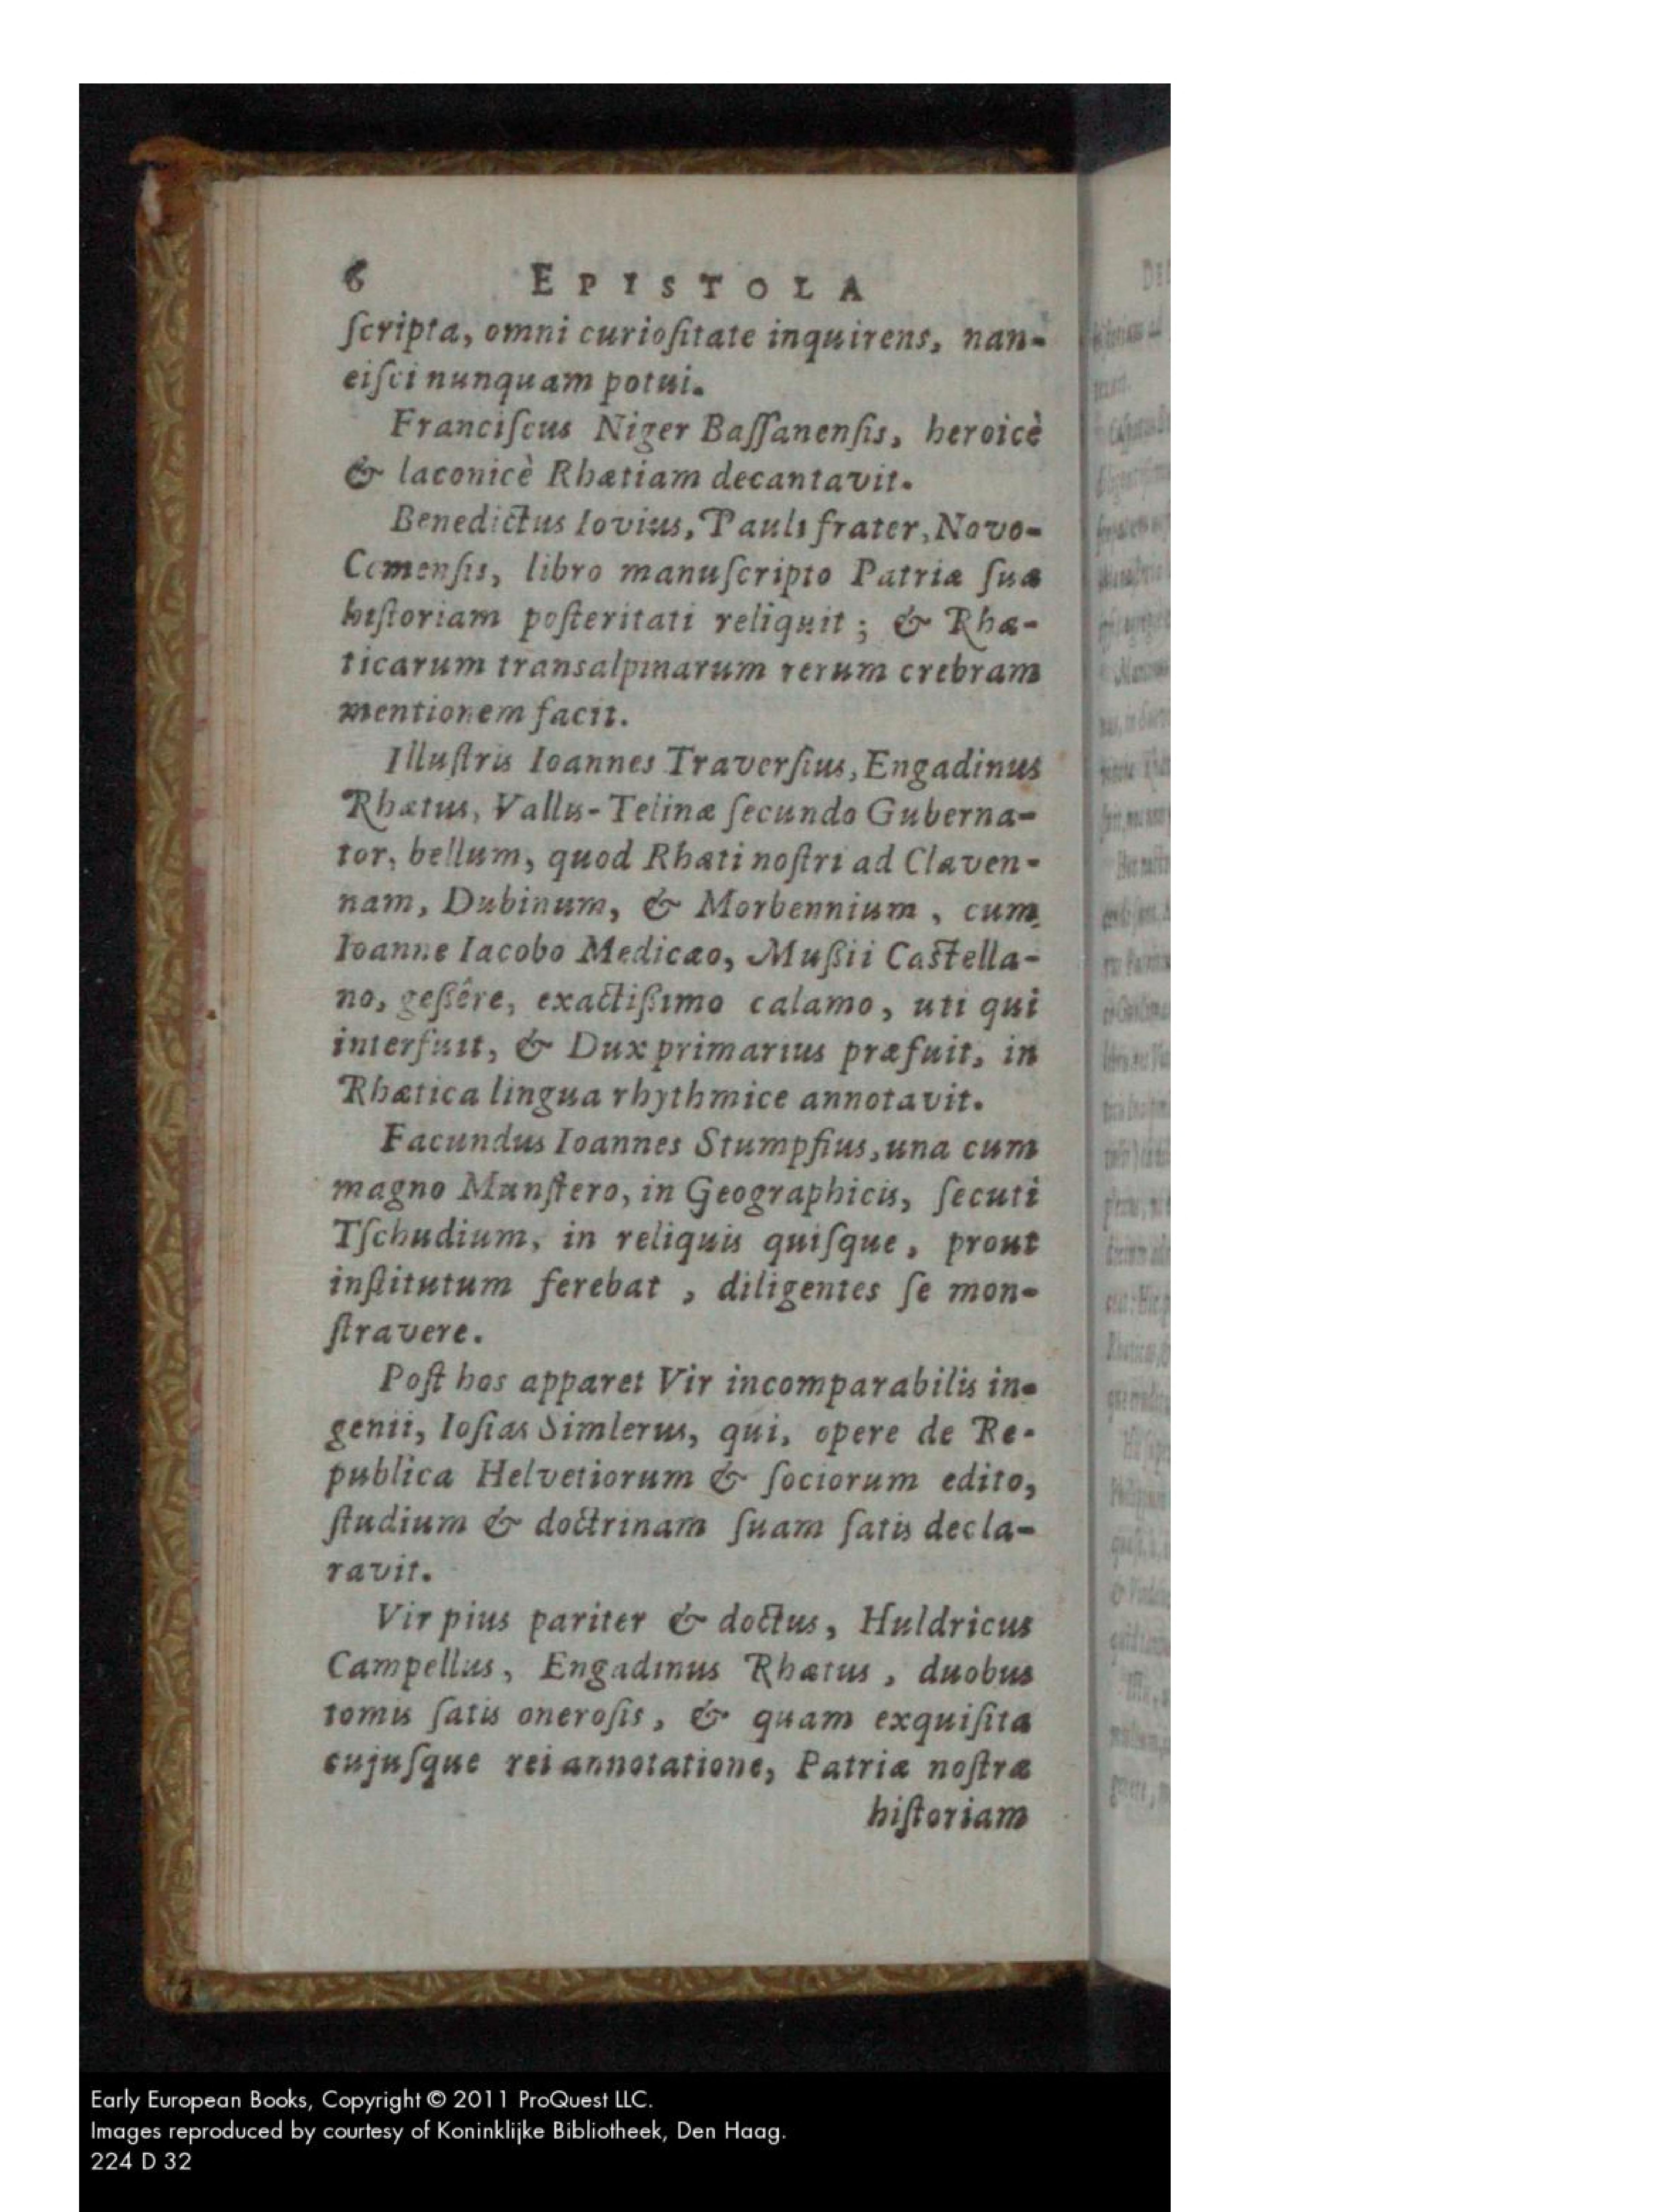 6 EPISTOLA
ſcripta, omni curioſitate inquirens, nan-
ciſci nunquam potui.
Franciſcus Niger Baſſanenſis, heroicè
& laconicè Rhætiam decantavit.
Benedictus Iovius, Pauli frater, Novo-
Comenſis, libro manuſcripto Patriæ ſuæ
hiſtoriam poſteritati reliquit; & Rhæ-
ticarum transalpinarum rerum crebram
mentionem facit.
Illuſtris Ioannes Traverſius, Engadinus
Rhætus, Vallis-Telinæ ſecundo Guberna-
tor, bellum, quod Rhæti noſtri ad Claven-
nam, Dubinum, & Morbennium, cum
Ioanne Iacobo Medicæo, Mußii Caſtella-
no, geßêre, exactißimo calamo, uti qui
interfuit, & Dux primarius præfuit, in
Rhætica lingua rhythmice annotavit.
Facundus Ioannes Stumpfius, una cum
magno Munſtero, in Geographicis, ſecuti
Tſchudium, in reliquis quiſque, prout
inſtitutum ferebat, diligentes ſe mon-
ſtravere.
Poſt hos apparet Vir incomparabilis in-
genii, Ioſias Simlerus, qui, opere de Re-
publica Helvetiorum & ſociorum edito,
ſtudium & doctrinam ſuam ſatis decla-
ravit.
Vir pius pariter & doctus, Huldricus
Campellus, Engadinus Rhætus, duobus
tomis ſatis oneroſis, & quam exquiſita
cujuſque rei annotatione, Patriæ noſtræ
hiſtoriam
Early European Books, Copyright © 2011 ProQuest LLC.
Images reproduced by courtesy of Koninklijke Bibliotheek, Den Haag.
224 D 32